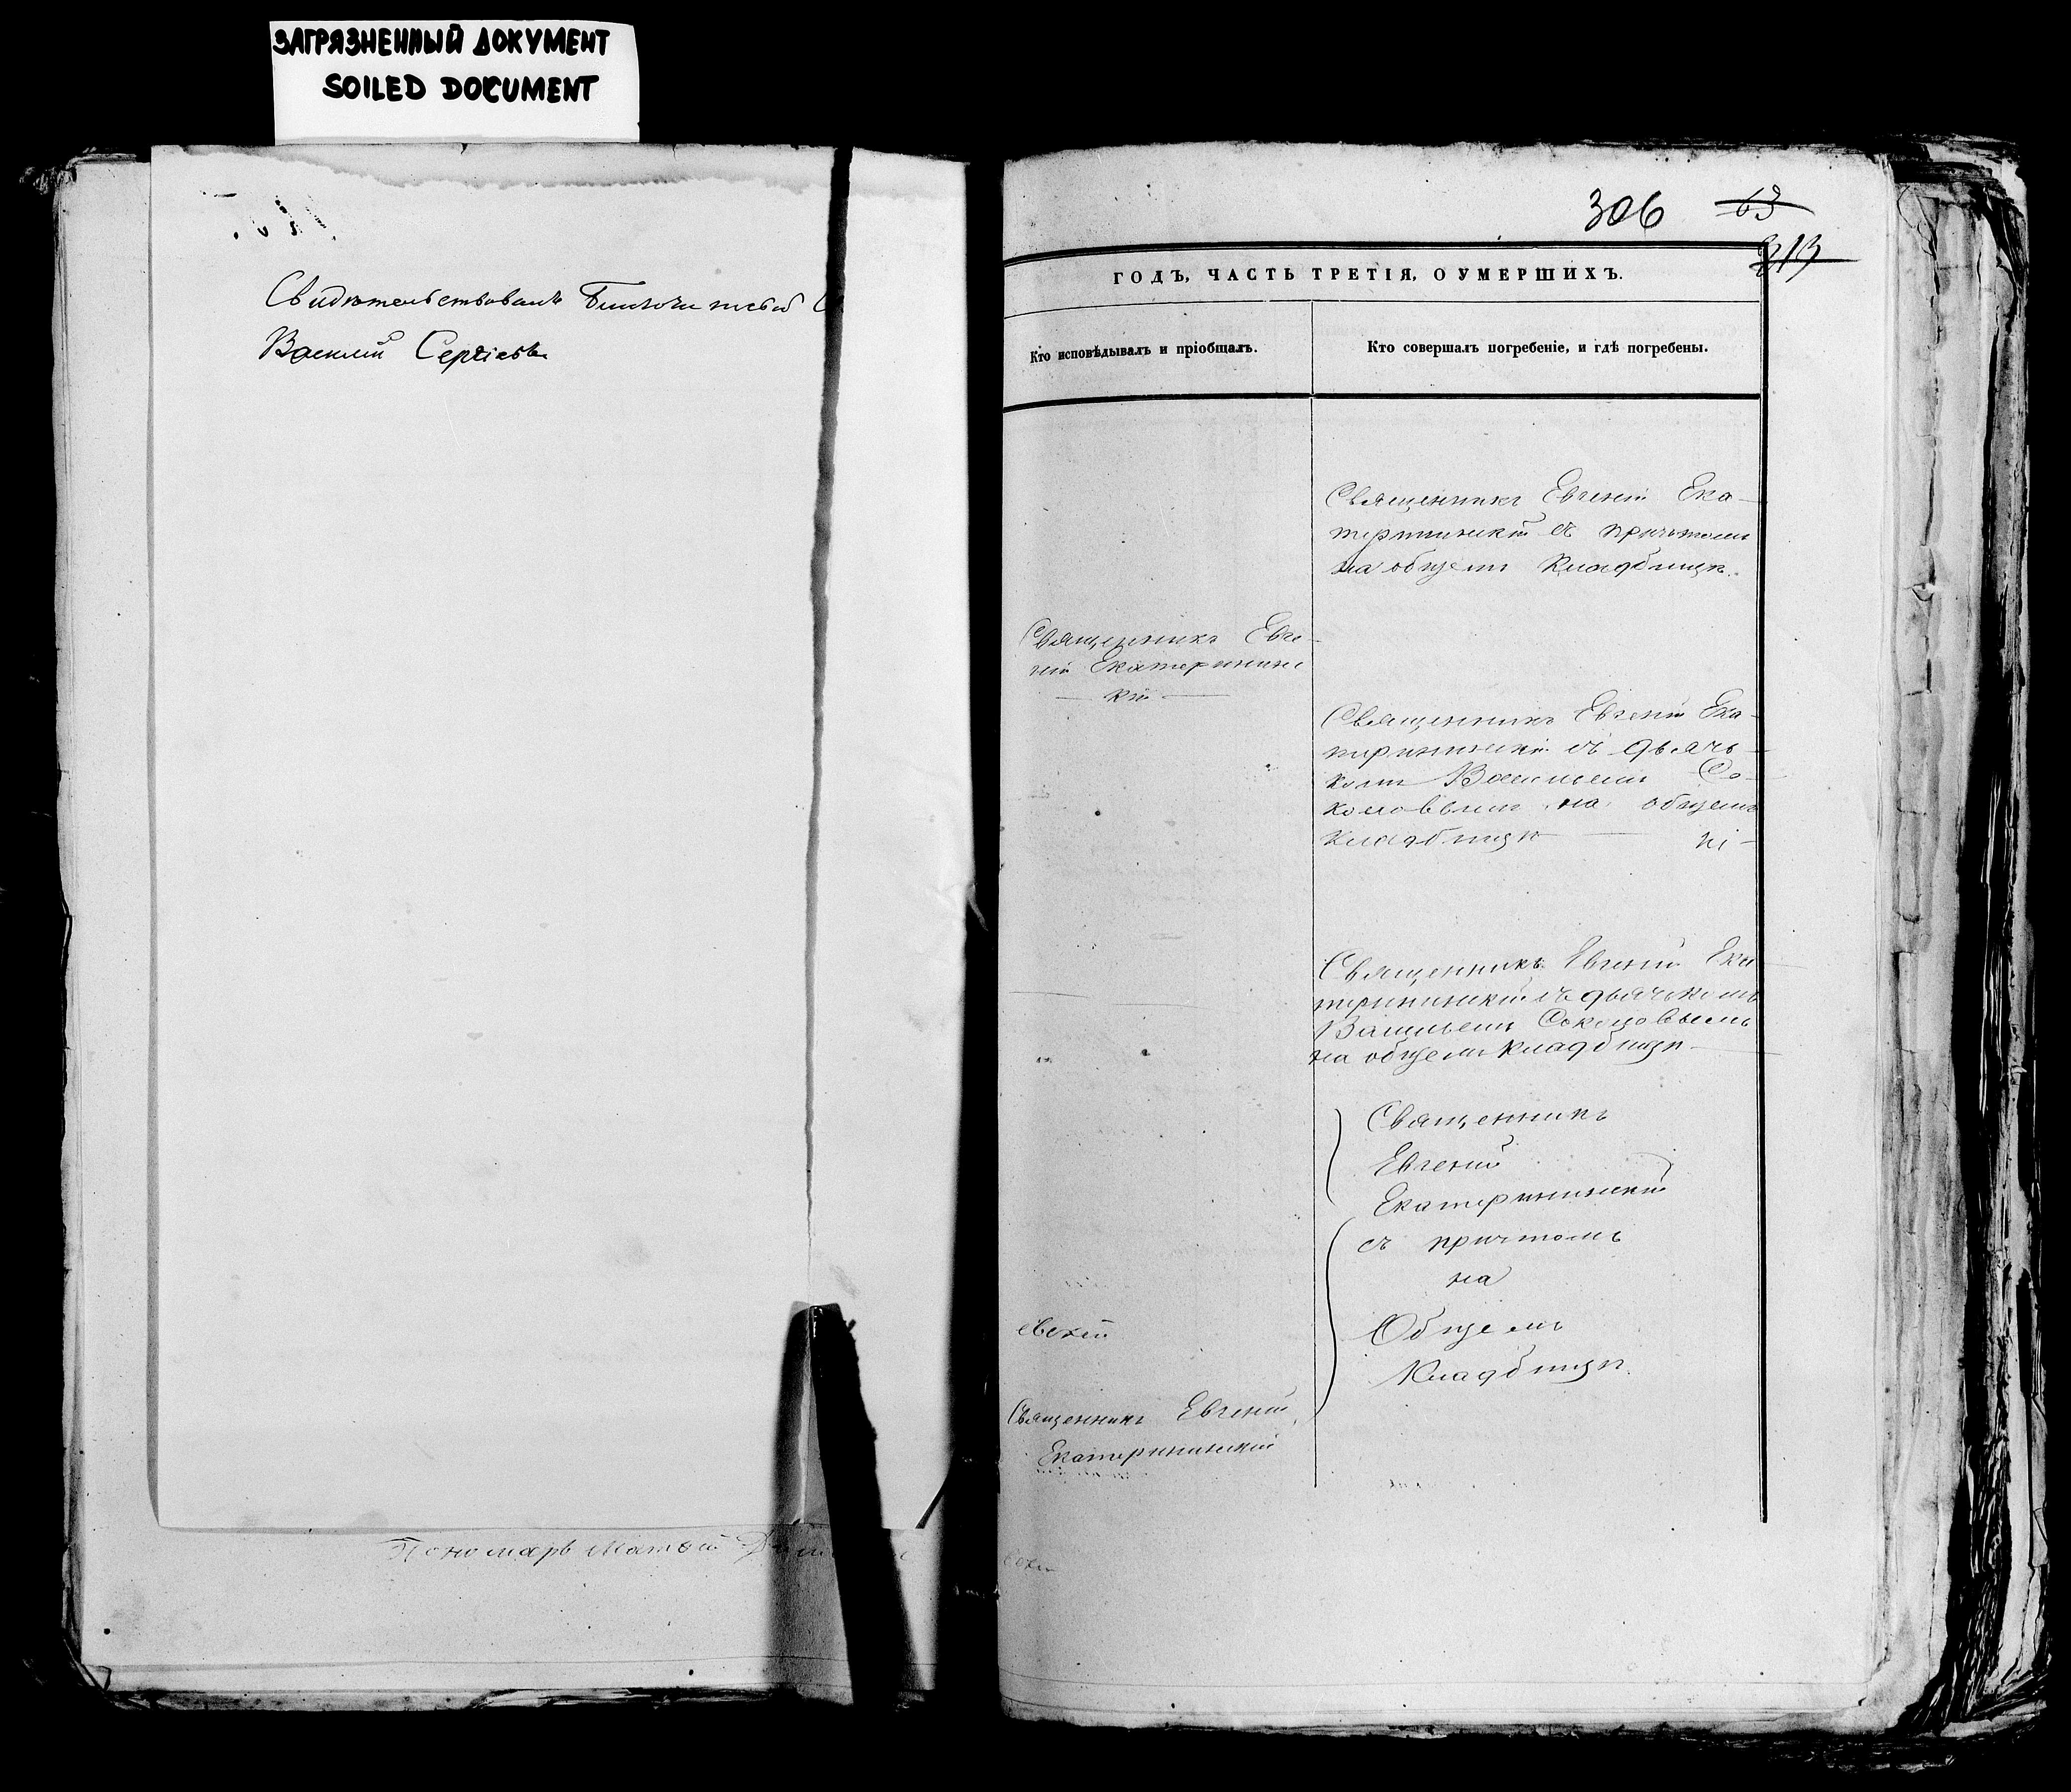 ЗАГРЯЗНЕННЫЙ ДОКУМЕНТ
SOILED DOCUMENT
Свидѣтельствовалъ Благочинный С
Василій Сергіевъ
Пономарь Матвей
306 63
313
ГОДЪ, ЧАСТЬ ТРЕТІЯ, О УМЕРШИХЪ.
Кто исповѣдывалъ и пріобщалъ.
Кто совершалъ погребеніе, и гдѣ погребены.
Священникъ Евгеній Ека-
терининскій съ причтомъ
на общемъ Кладбищѣ.
Священникъ Евге-
ній Екатерининс
кій
Священникъ Евгеній Ека-
терининскій съ дьячь-
комъ Васильемъ Со-
коловымъ на общемъ
кладбищѣ
Священникъ Евгеній Ека
терининскій съ дьячькомъ
Васильемъ Соколовымъ
на общемъ кладбищѣ
Священникъ
Евгеній
Екатерининскій
съ причтомъ
на
Общемъ
Кладбищѣ.
Священникъ Евгеній
Екатерининскій